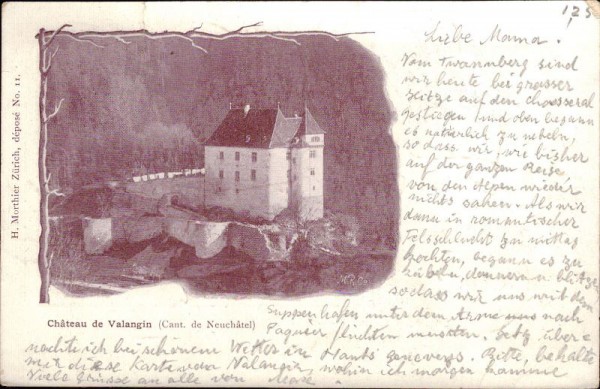 1,25
H. Morthier Zürich, déposé No. 11.
Liebe Mama.
Vom Twannberg sind
wir heute bei grosser
Hitze auf den Chasseral
gestiegen und oben begann
es natürlich zu nebeln,
so dass wir, wie bisher
auf der ganzen Reise
von den Alpen wieder
nichts sahen. Als wir
dann in romantischer
Felsschlucht zu mittag
kochten, begann es zu
donnern & blitzen
sodass wir uns mit dem
Suppenhafen unter dem Arme uns nach
Paquier flüchten mussten. Jetz über=
nachte ich bei schönem Wetter in Hauts geneveys. Bitte, behalte
mir diese Karte von Valangin, wohin ich morgen komme
Viele Grüsse an alle von
Château de Valangin (Cant. de Neuchâtel)